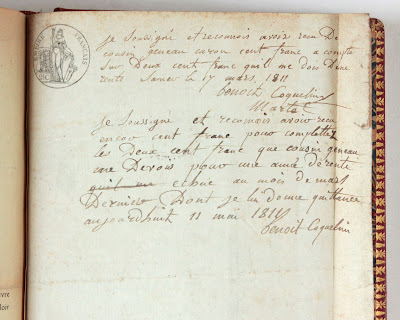 je Soussigné et reconois avoir recu De
cousin geneau cent franc a compte
Sur Deux cent franc quil me dois Dune
rente 17 mars, 1811
benoit Coquelin
Martel
Je Soussigné et reconois avoir recu
encor cent franc pour completter
les deux cent franc que cousin geneau
me Devois pour une ané de rente
quil me echue au mois de mars
Dernier Dont je lui donne quittance
aujourdhuit 11 mai
benoit Coquelin
FRANÇAIS
uvre
loir